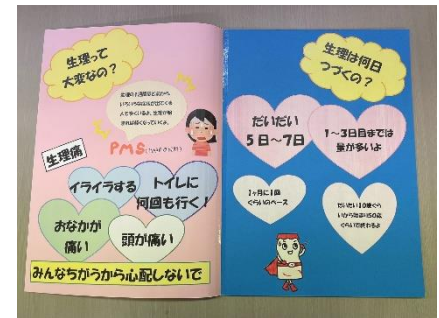 生理って
大変なの？
いろいろな症状が出てくる
PMS
生理痛
イライラする
トイレに
何回も行く！
おなかが
痛い
頭が痛い
みんなちがうから心配しないで
生理は何日
つづくの？
だいたい
5日～7日
1～3日目までは
量が多いよ
1ヶ月に1回
ぐらいのペース
だいたい10歳ぐら
いからだいたい50歳
ぐらいで終わるよ